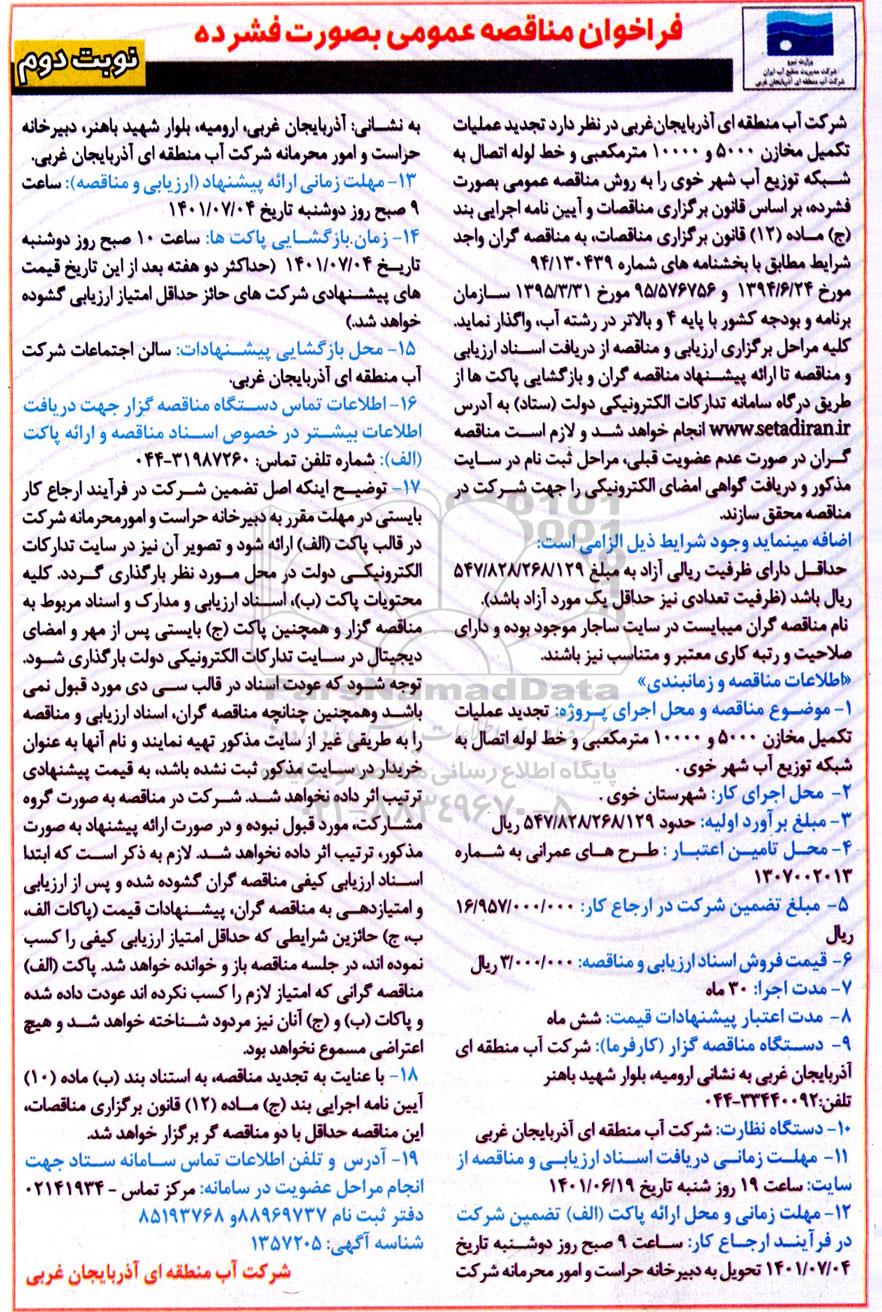 فراخوان مناقصه عمومی بصورت فشرده
نوبت دوم
وزارت نیرو
شرکت مدیریت منابع آب ایران
شرکت آب منطقه ای آذربایجان غربی
شرکت آب منطقه ای آذربایجان‌غربی در نظر دارد تجدید عملیات
تکمیل مخازن ۵۰۰۰ و ۱۰۰۰۰ مترمکعبی و خط لوله اتصال به
شبکه توزیع آب شهر خوی را به روش مناقصه عمومی بصورت
فشرده، بر اساس قانون برگزاری مناقصات و آیین نامه اجرایی بند
(ج) ماده (۱۲) قانون برگزاری مناقصات، به مناقصه گران واجد
شرایط مطابق با بخشنامه های شماره ۹۴/۱۳۰۴۳۹
مورخ ۱۳۹۴/۶/۲۴ و ۹۵/۵۷۶۷۵۶ مورخ ۱۳۹۵/۳/۳۱ سازمان
برنامه و بودجه کشور با پایه ۴ و بالاتر در رشته آب، واگذار نماید.
کلیه مراحل برگزاری ارزیابی و مناقصه از دریافت اسناد ارزیابی
و مناقصه تا ارائه پیشنهاد مناقصه گران و بازگشایی پاکت ها از
طریق درگاه سامانه تدارکات الکترونیکی دولت (ستاد) به آدرس
www.setadiran.ir انجام خواهد شد و لازم است مناقصه
گران در صورت عدم عضویت قبلی، مراحل ثبت نام در سایت
مذکور و دریافت گواهی امضای الکترونیکی را جهت شرکت در
مناقصه محقق سازند.
اضافه مینماید وجود شرایط ذیل الزامی است:
حداقل دارای ظرفیت ریالی آزاد به مبلغ ۵۴۷/۸۲۸/۲۶۸/۱۲۹
ریال باشد (ظرفیت تعدادی نیز حداقل یک مورد آزاد باشد).
نام مناقصه گران میبایست در سایت ساجار موجود بوده و دارای
صلاحیت و رتبه کاری معتبر و متناسب نیز باشند.
«اطلاعات مناقصه و زمانبندی»
۱- موضوع مناقصه و محل اجرای پروژه: تجدید عملیات
تکمیل مخازن ۵۰۰۰ و ۱۰۰۰۰ مترمکعبی و خط لوله اتصال به
شبکه توزیع آب شهر خوی .
۲- محل اجرای کار: شهرستان خوی .
۳- مبلغ برآورد اولیه: حدود ۵۴۷/۸۲۸/۲۶۸/۱۲۹ ریال
۴- محل تامین اعتبار : طرح های عمرانی به شماره
۱۳۰۷۰۰۲۰۱۳
۵- مبلغ تضمین شرکت در ارجاع کار: ۱۶/۹۵۷/۰۰۰/۰۰۰
ریال
۶- قیمت فروش اسناد ارزیابی و مناقصه: ۳/۰۰۰/۰۰۰ ریال
۷- مدت اجرا: ۳۰ ماه
۸- مدت اعتبار پیشنهادات قیمت: شش ماه
۹- دستگاه مناقصه گزار (کارفرما): شرکت آب منطقه ای
آذربایجان غربی به نشانی ارومیه، بلوار شهید باهنر
تلفن:۳۳۴۴۰۰۹۲-۰۴۴
۱۰- دستگاه نظارت: شرکت آب منطقه ای آذربایجان غربی
۱۱- مهلت زمانی دریافت اسناد ارزیابی و مناقصه از
سایت: ساعت ۱۹ روز شنبه تاریخ ۱۴۰۱/۰۶/۱۹
۱۲- مهلت زمانی و محل ارائه پاکت (الف) تضمین شرکت
در فرآیند ارجاع کار: ساعت ۹ صبح روز دوشنبه تاریخ
۱۴۰۱/۰۷/۰۴ تحویل به دبیرخانه حراست و امور محرمانه شرکت
به نشانی: آذربایجان غربی، ارومیه، بلوار شهید باهنر، دبیرخانه
حراست و امور محرمانه شرکت آب منطقه ای آذربایجان غربی.
۱۳- مهلت زمانی ارائه پیشنهاد (ارزیابی و مناقصه): ساعت
۹ صبح روز دوشنبه تاریخ ۱۴۰۱/۰۷/۰۴
۱۴- زمان بازگشایی پاکت ها: ساعت ۱۰ صبح روز دوشنبه
تاریخ ۱۴۰۱/۰۷/۰۴ (حداکثر دو هفته بعد از این تاریخ قیمت
های پیشنهادی شرکت های حائز حداقل امتیاز ارزیابی گشوده
خواهد شد.)
۱۵- محل بازگشایی پیشنهادات: سالن اجتماعات شرکت
آب منطقه ای آذربایجان غربی.
۱۶- اطلاعات تماس دستگاه مناقصه گزار جهت دریافت
اطلاعات بیشتر در خصوص اسناد مناقصه و ارائه پاکت
(الف): شماره تلفن تماس: ۳۱۹۸۷۲۶۰-۰۴۴
۱۷- توضیح اینکه اصل تضمین شرکت در فرآیند ارجاع کار
بایستی در مهلت مقرر به دبیرخانه حراست و امورمحرمانه شرکت
در قالب پاکت (الف) ارائه شود و تصویر آن نیز در سایت تدارکات
الکترونیکی دولت در محل مورد نظر بارگذاری گردد. کلیه
محتویات پاکت (ب)، اسناد ارزیابی و مدارک و اسناد مربوط به
مناقصه گزار و همچنین پاکت (ج) بایستی پس از مهر و امضای
دیجیتال در سایت تدارکات الکترونیکی دولت بارگذاری شود.
توجه شود که عودت اسناد در قالب سی دی مورد قبول نمی
باشد وهمچنین چنانچه مناقصه گران، اسناد ارزیابی و مناقصه
را به طریقی غیر از سایت مذکور تهیه نمایند و نام آنها به عنوان
خریدار در سایت مذکور ثبت نشده باشد، به قیمت پیشنهادی
ترتیب اثر داده نخواهد شد. شرکت در مناقصه به صورت گروه
مشارکت، مورد قبول نبوده و در صورت ارائه پیشنهاد به صورت
مذکور، ترتیب اثر داده نخواهد شد. لازم به ذکر است که ابتدا
اسناد ارزیابی کیفی مناقصه گران گشوده شده و پس از ارزیابی
و امتیازدهی به مناقصه گران، پیشنهادات قیمت (پاکات الف،
ب، ج) حائزین شرایطی که حداقل امتیاز ارزیابی کیفی را کسب
نموده اند، در جلسه مناقصه باز و خوانده خواهد شد. پاکت (الف)
مناقصه گرانی که امتیاز لازم را کسب نکرده اند عودت داده شده
و پاکات (ب) و (ج) آنان نیز مردود شناخته خواهد شد و هیچ
اعتراضی مسموع نخواهد بود.
۱۸- با عنایت به تجدید مناقصه، به استناد بند (ب) ماده (۱۰)
آیین نامه اجرایی بند (ج) ماده (۱۲) قانون برگزاری مناقصات،
این مناقصه حداقل با دو مناقصه گر برگزار خواهد شد.
۱۹- آدرس و تلفن اطلاعات تماس سامانه ستاد جهت
انجام مراحل عضویت در سامانه: مرکز تماس - ۰۲۱۴۱۹۳۴
دفتر ثبت نام ۸۸۹۶۹۷۳۷و ۸۵۱۹۳۷۶۸
شناسه آگهی: ۱۳۵۷۲۰۵
شرکت آب منطقه ای آذربایجان غربی
ParsNamadData
پایگاه اطلاع رسانی مناقصه و مزایده
۰۲۱-۸۸۳۴۹۶۷۰-۵